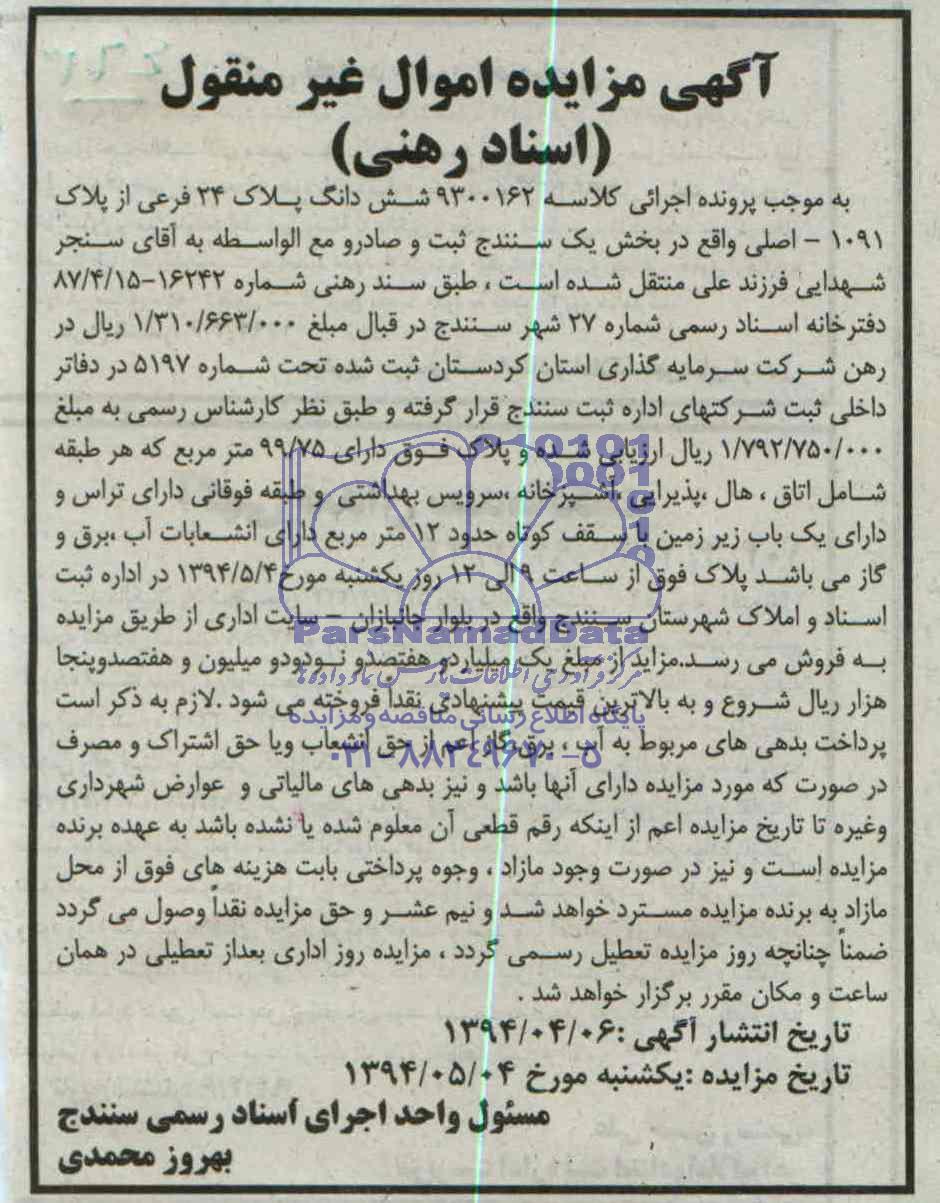 آگهی مزایده اموال غیر منقول
(اسناد رهنی)
به موجب پرونده اجرائی کلاسه ۹۳۰۰۱۶۲ شش دانگ پلاک ۲۴ فرعی از پلاک
۱۰۹۱ - اصلی واقع در بخش یک سنندج ثبت و صادرو مع الواسطه به آقای سنجر
شهدایی فرزند علی منتقل شده است ، طبق سند رهنی شماره ۱۶۲۴۲-۸۷/۴/۱۵
دفترخانه اسناد رسمی شماره ۲۷ شهر سنندج در قبال مبلغ ۱/۳۱۰/۶۶۳/۰۰۰ ریال در
رهن شرکت سرمایه گذاری استان کردستان ثبت شده تحت شماره ۵۱۹۷ در دفاتر
داخلی ثبت شرکتهای اداره ثبت سنندج قرار گرفته و طبق نظر کارشناس رسمی به مبلغ
۱/۷۹۲/۷۵۰/۰۰۰ ریال ارزیابی شده و پلاک فوق دارای ۹۹/۷۵ متر مربع که هر طبقه
شامل اتاق ، هال ،پذیرایی ،آشپزخانه ،سرویس بهداشتی و طبقه فوقانی دارای تراس و
دارای یک باب زیر زمین با سقف کوتاه حدود ۱۲ متر مربع دارای انشعابات آب ،برق و
گاز می باشد پلاک فوق از ساعت ۹ الی ۱۲ روز یکشنبه مورخ ۱۳۹۴/۵/۴ در اداره ثبت
اسناد و املاک شهرستان سنندج واقع در بلوار جانبازان - سایت اداری از طریق مزایده
به فروش می رسد.مزاید از مبلغ یک میلیاردو هفتصدو نودودو میلیون و هفتصدوپنجا
هزار ریال شروع و به بالاترین قیمت پیشنهادی نقدا فروخته می شود .لازم به ذکر است
پرداخت بدهی های مربوط به آب ، برق،گاز اعم از حق انشعاب ویا حق اشتراک و مصرف
در صورت که مورد مزایده دارای آنها باشد و نیز بدهی های مالیاتی و عوارض شهرداری
وغیره تا تاریخ مزایده اعم از اینکه رقم قطعی آن معلوم شده یا نشده باشد به عهده برنده
مزایده است و نیز در صورت وجود مازاد ، وجوه پرداختی بابت هزینه های فوق از محل
مازاد به برنده مزایده مسترد خواهد شد و نیم عشر و حق مزایده نقداً وصول می گردد
ضمناً چنانچه روز مزایده تعطیل رسمی گردد ، مزایده روز اداری بعداز تعطیلی در همان
ساعت و مکان مقرر برگزار خواهد شد .
تاریخ انتشار آگهی :۱۳۹۴/۰۴/۰۶
تاریخ مزایده :یکشنبه مورخ ۱۳۹۴/۰۵/۰۴
مسئول واحد اجرای اسناد رسمی سنندج
بهروز محمدی
ParsNamadData
مرکز فرآوری اطلاعات پارس نماد داده ها
پایگاه اطلاع رسانی مناقصه و مزایده
۰۲۱-۸۸۳۴۹۶۷۰-۵